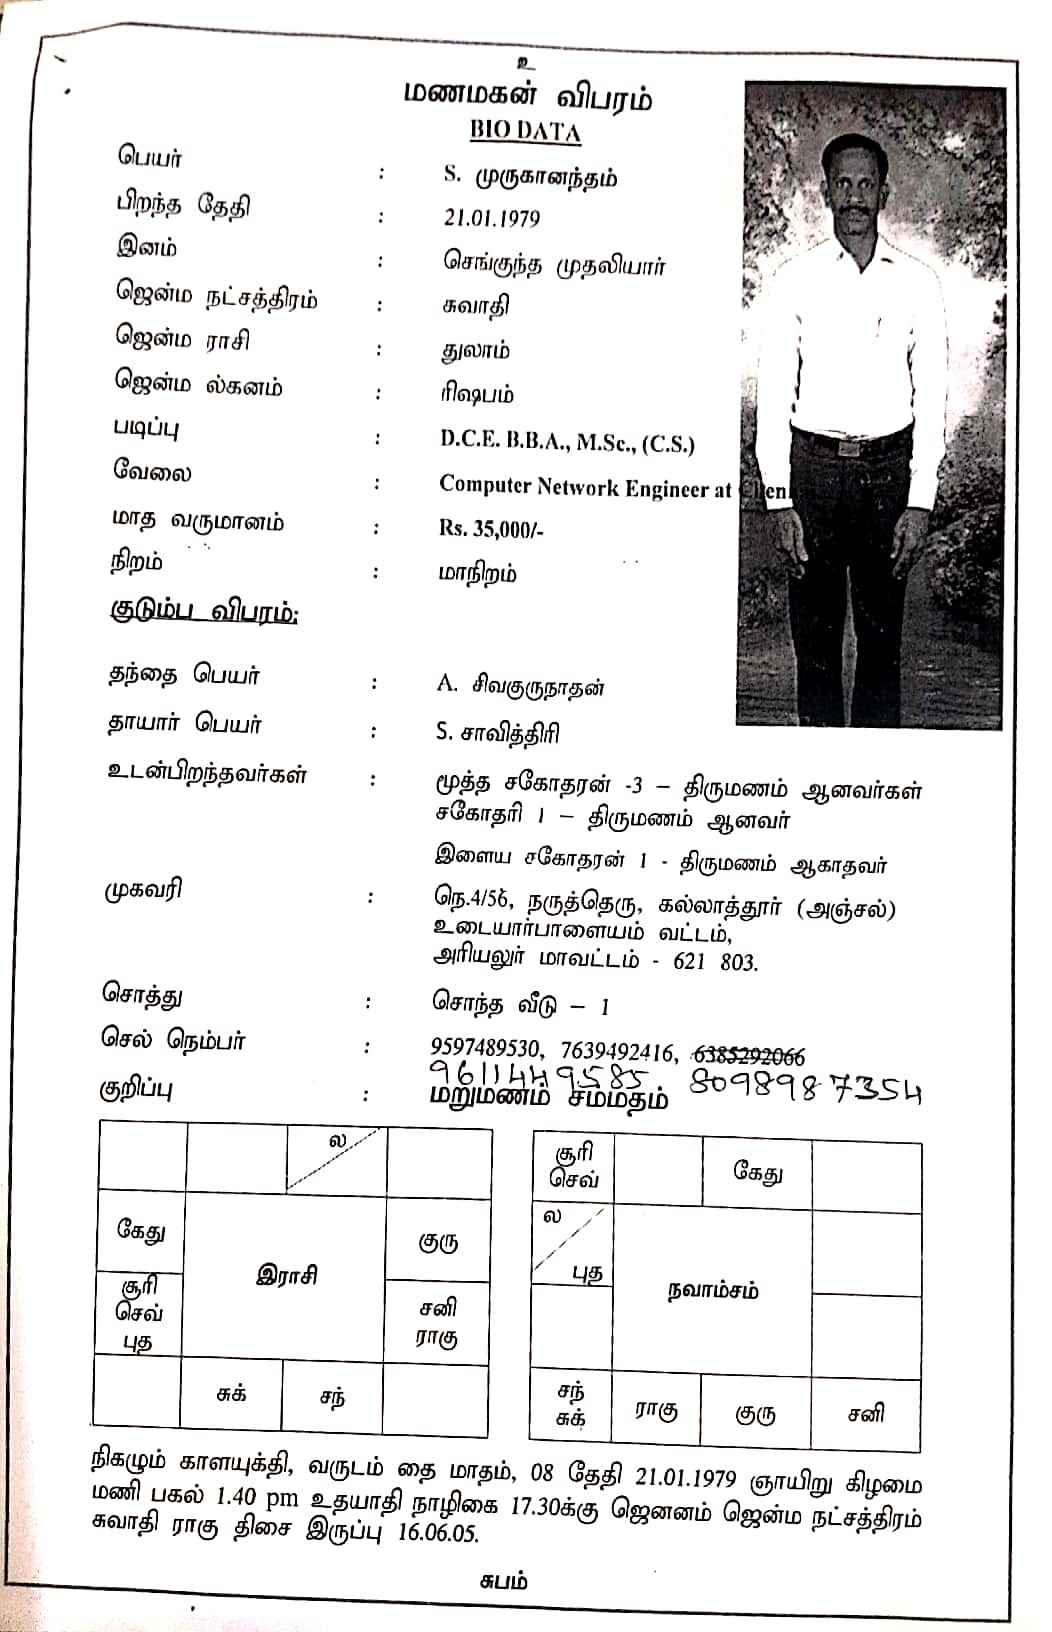 உ
மணமகன் விபரம்
BIO DATA
பெயர் : S. முருகானந்தம்
பிறந்த தேதி : 21.01.1979
இனம் : செங்குந்த முதலியார்
ஜென்ம நட்சத்திரம் : சுவாதி
ஜென்ம ராசி : துலாம்
ஜென்ம ல்கனம் : ரிஷபம்
படிப்பு : D.C.E. B.B.A., M.Sc., (C.S.)
வேலை : Computer Network Engineer at Chen
மாத வருமானம் : Rs. 35,000/-
நிறம் : மாநிறம்
குடும்ப விபரம்:
தந்தை பெயர் : A. சிவகுருநாதன்
தாயார் பெயர் : S. சாவித்திரி
உடன்பிறந்தவர்கள் : மூத்த சகோதரன் -3 – திருமணம் ஆனவர்கள்
சகோதரி 1 – திருமணம் ஆனவர்
இளைய சகோதரன் 1 - திருமணம் ஆகாதவர்
முகவரி : நெ.4/56, நருத்தெரு, கல்லாத்தூர் (அஞ்சல்)
உடையார்பாளையம் வட்டம்,
அரியலுர் மாவட்டம் - 621 803.
சொத்து : சொந்த வீடு – 1
செல் நெம்பர் : 9597489530, 7639492416, 6385292066
9611449585 8098987354
குறிப்பு : மறுமணம் சம்மதம்
ல
கேது குரு
இராசி
சூரி செவ் புத
சனி ராகு
சுக் சந்
சூரி செவ்
கேது
ல புத
நவாம்சம்
சந் சுக்
ராகு குரு சனி
நிகழும் காளயுக்தி, வருடம் தை மாதம், 08 தேதி 21.01.1979 ஞாயிறு கிழமை
மணி பகல் 1.40 pm உதயாதி நாழிகை 17.30க்கு ஜெனனம் ஜென்ம நட்சத்திரம்
சுவாதி ராகு திசை இருப்பு 16.06.05.
சுபம்